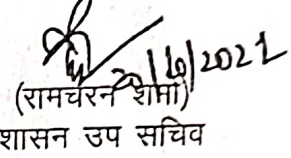 2021
(रामचरन शर्मा)
शासन उप सचिव